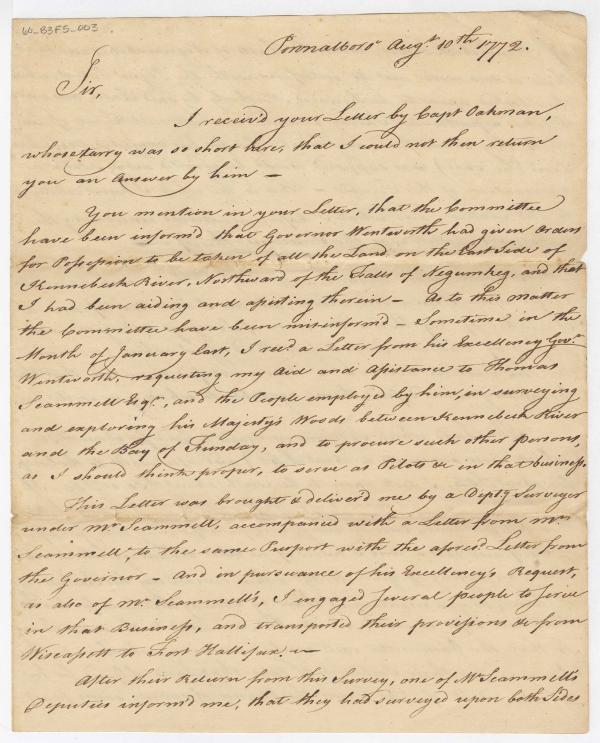 60-83FS-003
Pownalboro' Aug.t 10.th 1772.
Sir,
I receiv'd your Letter by Capt Oakman,
whose tarry was so short here, that I could not then return
you an Answer by him —
You mention in your Letter, that the Committee
have been inform'd that Governor Wentworth had given Orders
for Possession to be taken of all the Land on the East Side of
Kennebeck River, Northward of the Falls of Negumkeg, and that
I had been aiding and assisting therein — As to this matter
the Committee have been misinform'd — Sometime in the
Month of January last, I rec.d a Letter from his Excellency Gov.r
Wentworth, requesting my Aid and Assistance to Thomas
Scammell Esq.r, and the People employed by him, in surveying
and exploring his Majesty's Woods between Kennebeck River
and the Bay of Funday, and to procure such other Persons,
as I should think proper, to serve as Pilots &c in that business.
This Letter was brought & deliver'd me by a Dept.y Surveyor
under M.r Scammell, accompanied with a Letter from M.r
Scammell, to the same Purport with the afores.d Letter from
the Governor — And in pursuance of his Excellency's Request,
as also of M.r Scammell's, I engaged several people to serve
in that Business, and transported their provisions &c from
Wiscassett to Fort Hallifax. —
After their Return from this Survey, one of M.r Scammell's
Deputies inform'd me, that they had surveyed upon both Sides